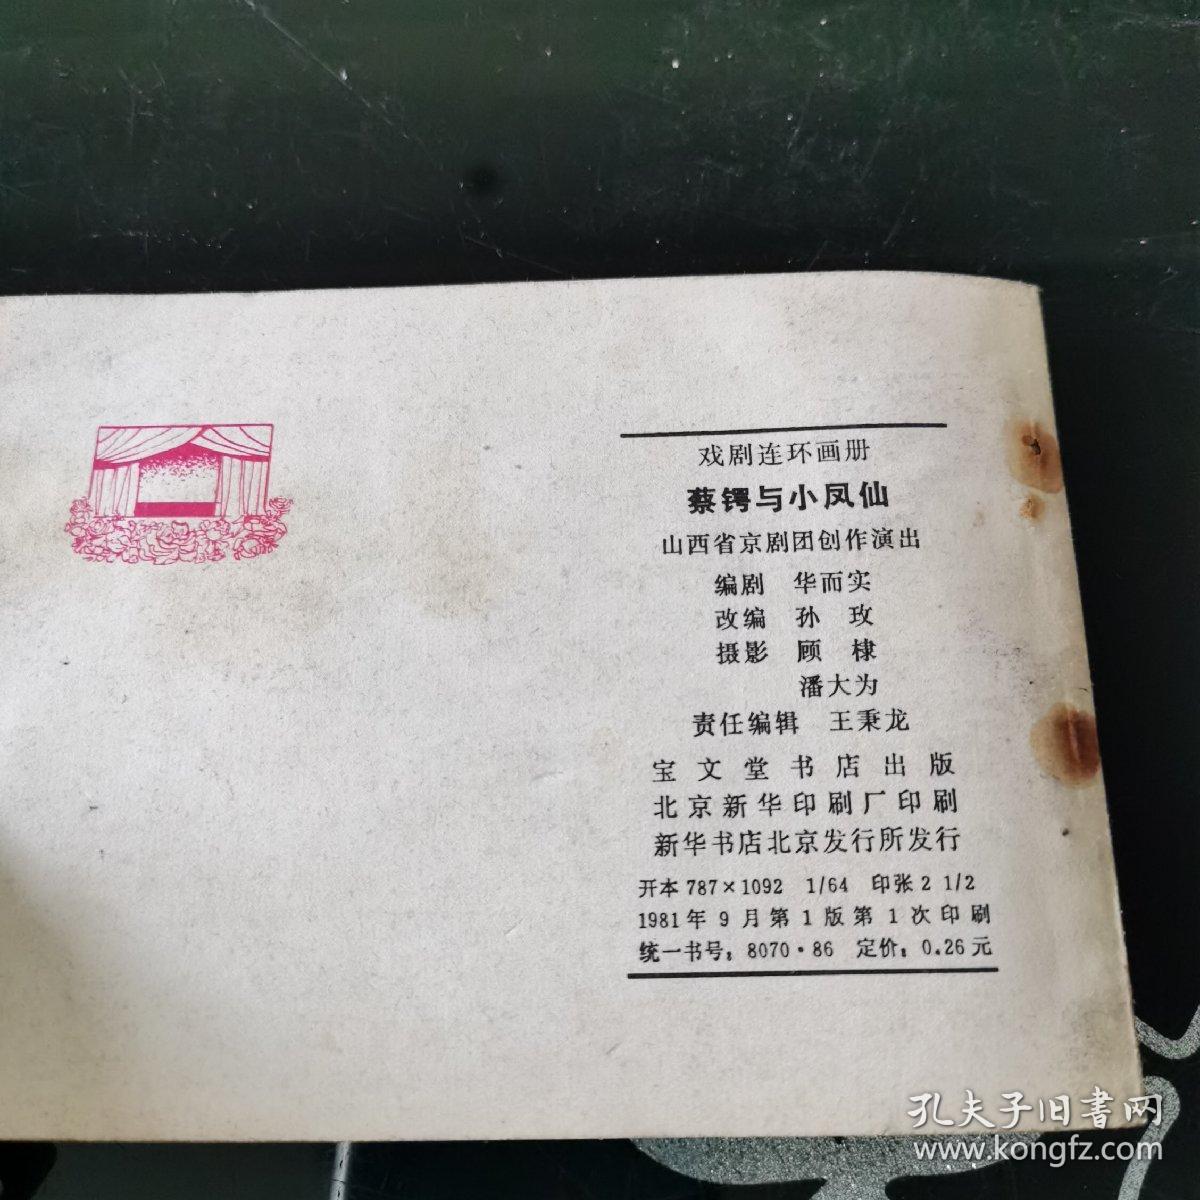 戏剧连环画册
蔡锷与小凤仙
山西省京剧团创作演出
编剧 华而实
改编 孙 玫
摄影 顾 棣
潘大为
责任编辑 王秉龙
宝文堂书店出版
北京新华印刷厂印刷
新华书店北京发行所发行
开本 787×1092 1/64 印张 2 1/2
1981年9月第1版第1次印刷
统一书号：8070·86 定价：0.26元
孔夫子旧書网
www.kongfz.com